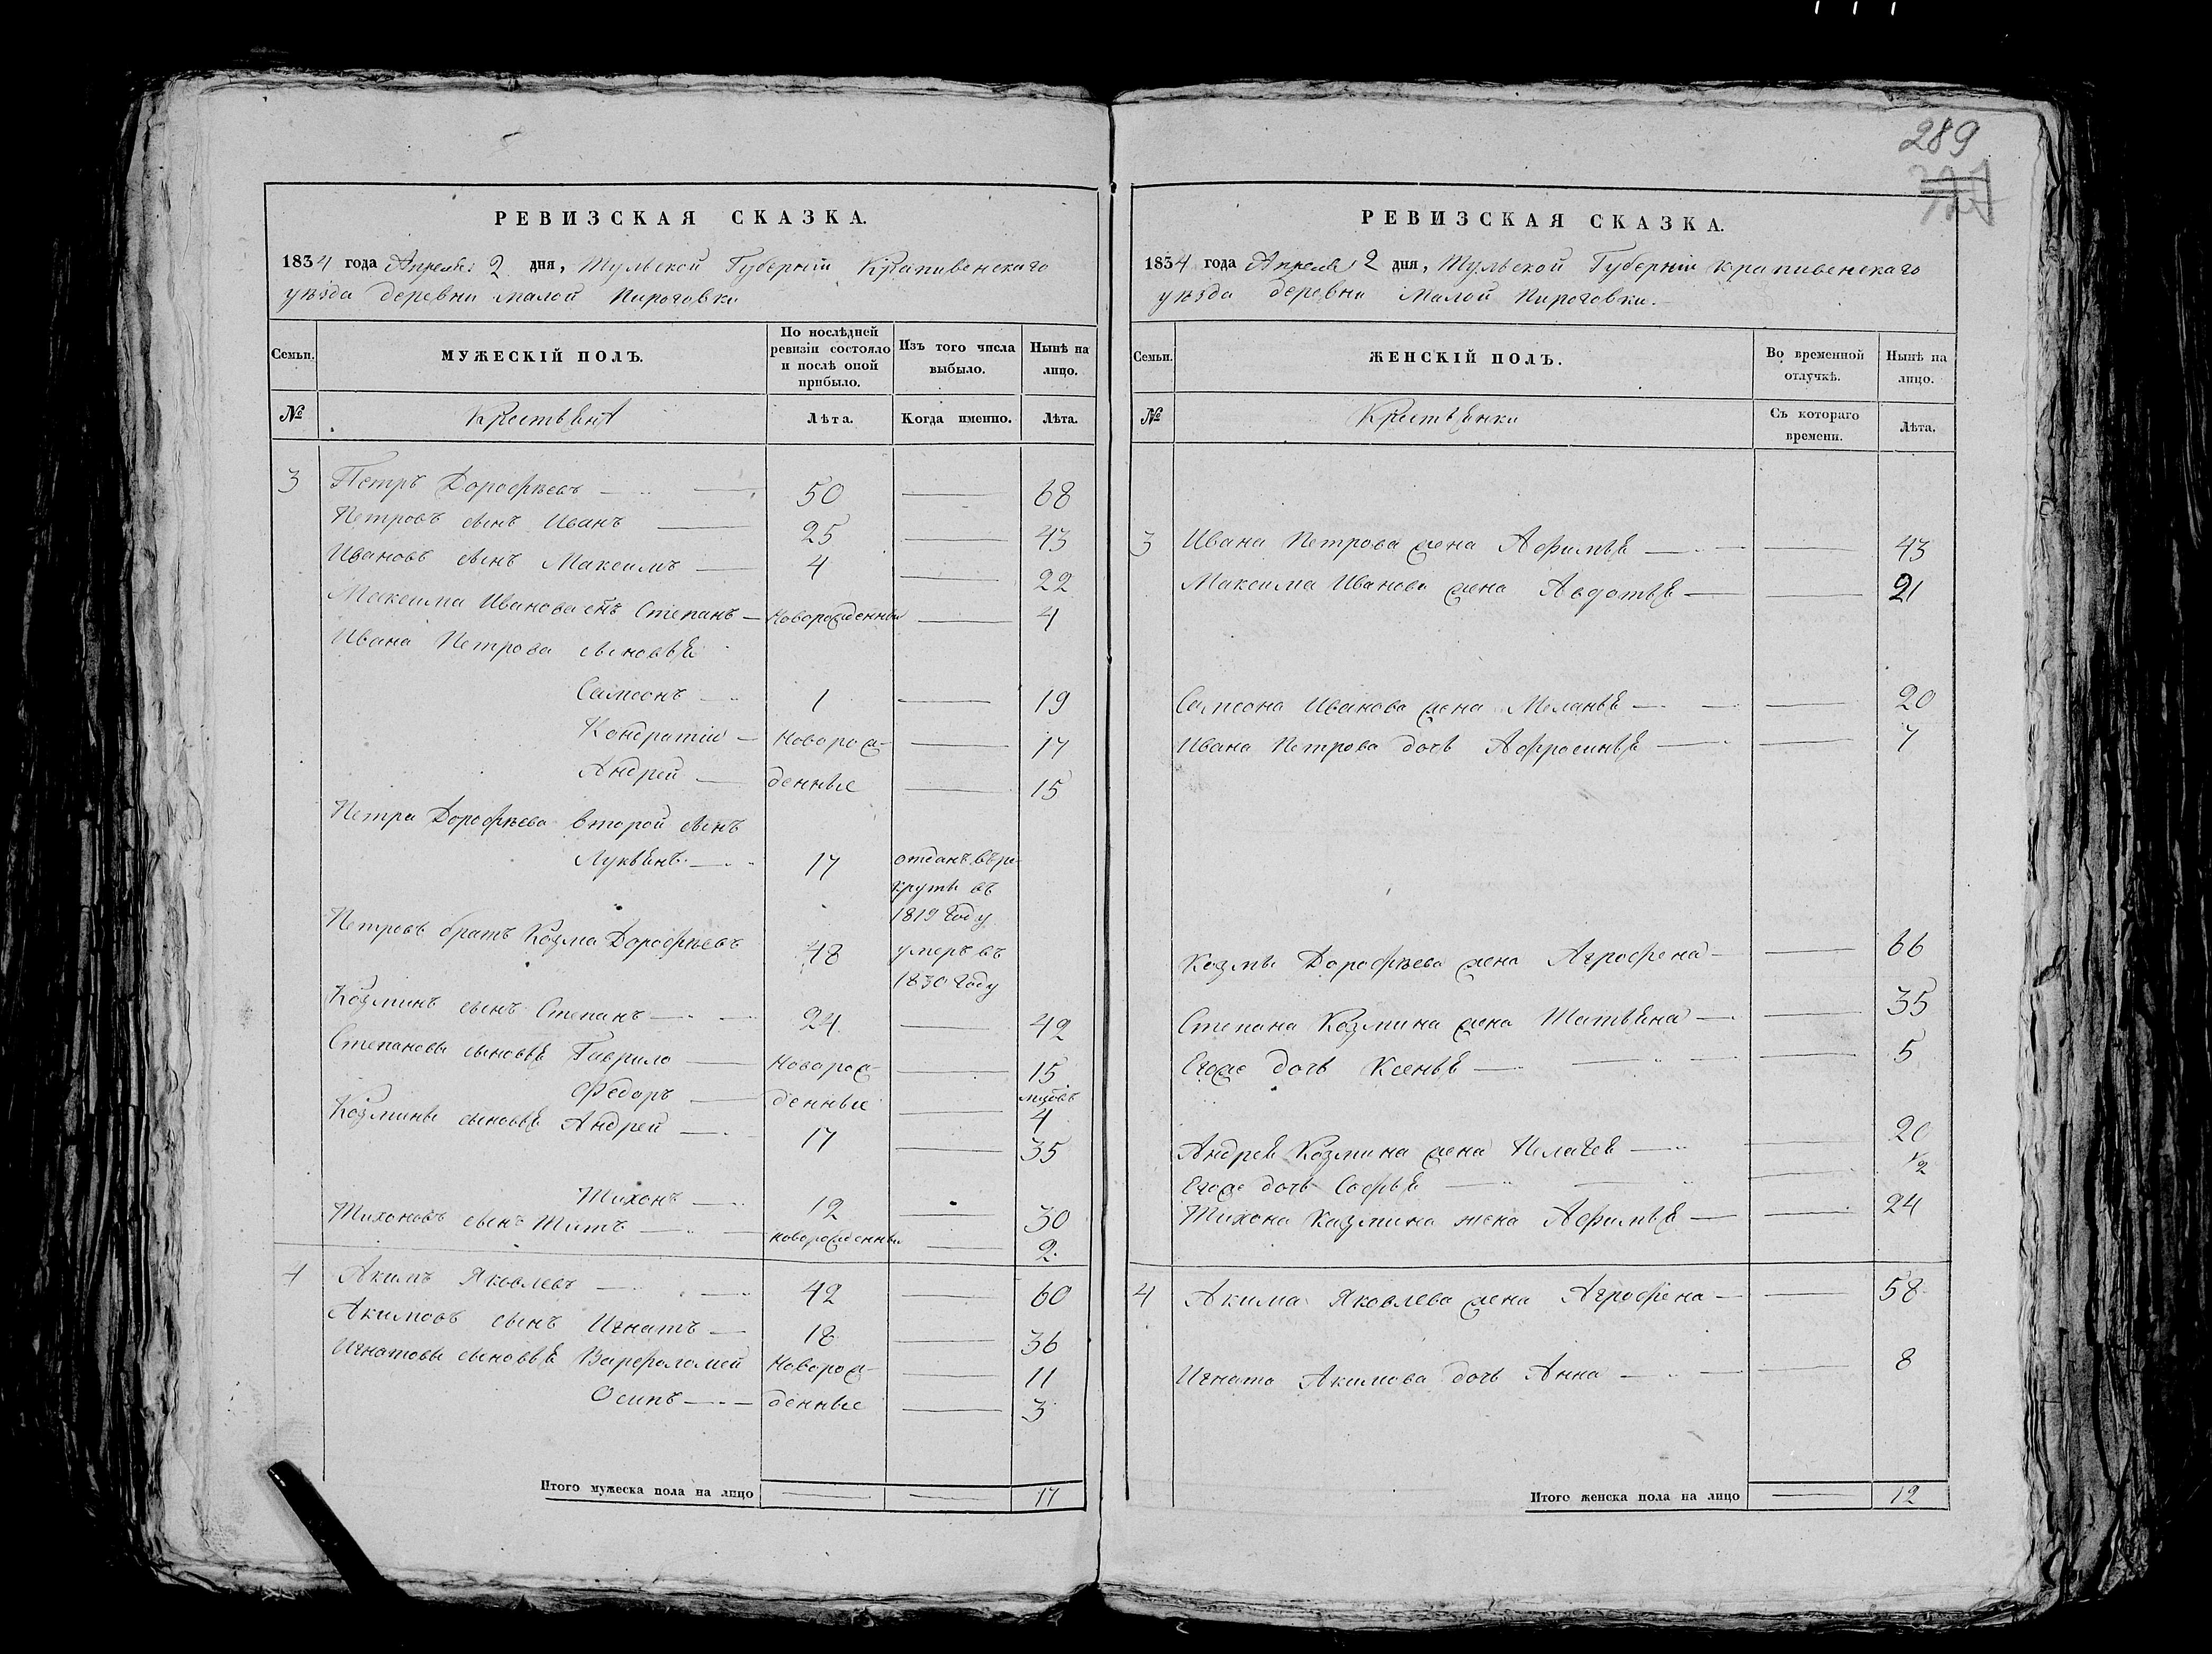 289
РЕВИЗСКАЯ СКАЗКА.
1834 года Апреля 2 дня, Тульской Губернiи Крапивенскаго
уѣзда деревни малой Пироговки
Семьи. МУЖЕСКІЙ ПОЛЪ. По послѣдней ревизіи состояло и послѣ оной прибыло. Изъ того числа выбыло. Нынѣ на лицо.
№ Крестьяня Лѣта. Когда именно. Лѣта.
3 Петръ Дорофѣевъ 50 68
Петровъ сынъ Иванъ 25 43
Ивановъ сынъ Максимъ 4 22
Максима Иванова сынъ Степанъ новорожденный 4
Ивана Петрова сыновья
Самсонъ 1 19
Кондратiй новорож- 17
Андрей денные 15
Петра Дорофѣева второй сынъ
Лукьянъ 17 отданъ въ ре-
круты въ
1819 году
Петровъ братъ Козма Дорофѣевъ 48 умеръ въ
1830 году
Козминъ сынъ Степанъ 24 42
Степановы сыновья Гаврило новорож- 15
Федоръ денные 4
Козмины сыновья Андрей 17 35
Тихонъ 12 30
Тихоновъ сынъ Титъ новорожденный 2
4 Акимъ Яковлевъ 42 60
Акимовъ сынъ Игнатъ 18 36
Игнатовы сыновья Варфоломей новорож- 11
Осипъ денные 3
Итого мужеска пола на лицо 17
РЕВИЗСКАЯ СКАЗКА.
1834 года Апреля 2 дня, Тульской Губернiи Крапивенскаго
уѣзда деревни малой Пироговки.
Семьи. ЖЕНСКІЙ ПОЛЪ. Во временной отлучкѣ. Нынѣ на лицо.
№ Крестьянки Съ котораго времени. Лѣта.
3 Ивана Петрова жена Афимья 43
Максима Иванова жена Авдотья 21
Самсона Иванова жена Меланья 20
Ивана Петрова дочь Афросинья 7
Козмы Дорофѣева жена Аграфена 66
Степана Козмина жена Татьяна 35
Егоже дочь Ксенья 5
Андрея Козмина жена Пелагея 20
Егоже дочь Софья 1/2
Тихона Казмина жена Афимья 24
4 Акима Яковлева жена Аграфена 58
Игната Акимова дочь Анна 8
Итого женска пола на лицо 12